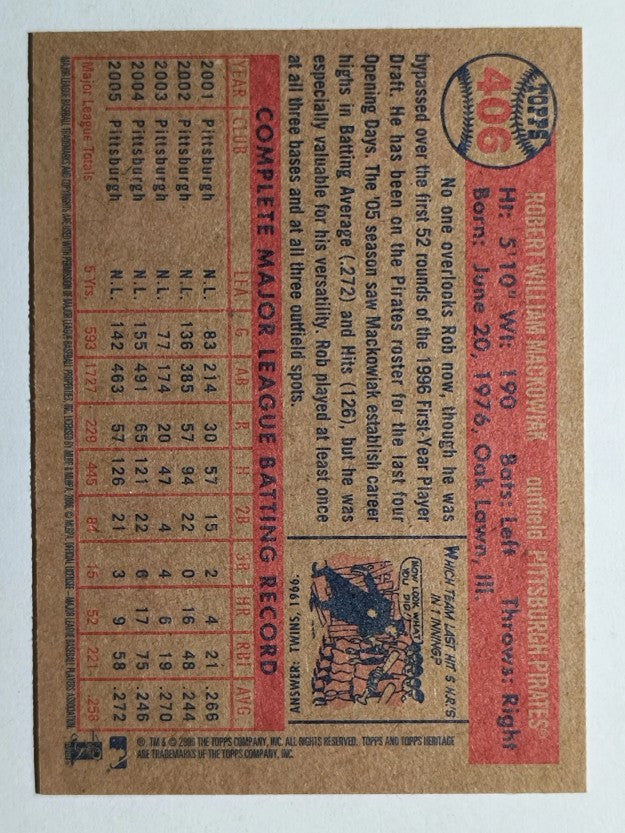 TOPPS
406
ROBERT WILLIAM MACKOWIAK outfield PITTSBURGH PIRATES
Ht: 5'10" Wt: 190 Bats: Left Throws: Right
Born: June 20, 1976, Oak Lawn, Ill.
No one overlooks Rob now, though he was
bypassed over the first 52 rounds of the 1996 First-Year Player
Draft. He has been on the Pirates roster for the last four
Opening Days. The '05 season saw Mackowiak establish career
highs in Batting Average (.272) and Hits (126), but he was
especially valuable for his versatility. Rob played at least once
at all three bases and at all three outfield spots.
WHICH TEAM LAST HIT 5 H.R'S
IN INNING?
NOW LOOK WHAT
YOU DID!
ANSWER: TWINS, 1966.
COMPLETE MAJOR LEAGUE BATTING RECORD
YEAR CLUB LEA G AB R H 2B 3B HR RBI AVG
2001 Pittsburgh N.L. 83 214 30 57 15 2 4 21 .266
2002 Pittsburgh N.L. 136 385 57 94 22 0 16 48 .244
2003 Pittsburgh N.L. 77 174 20 47 4 4 6 19 .270
2004 Pittsburgh N.L. 155 491 65 121 22 6 17 75 .246
2005 Pittsburgh N.L. 142 463 57 126 21 3 9 58 .272
Major League Totals 5 Yrs. 593 1727 229 445 84 15 52 221 .258
®, TM & © 2006 THE TOPPS COMPANY, INC. ALL RIGHTS RESERVED. TOPPS AND TOPPS HERITAGE
ARE TRADEMARKS OF THE TOPPS COMPANY, INC.